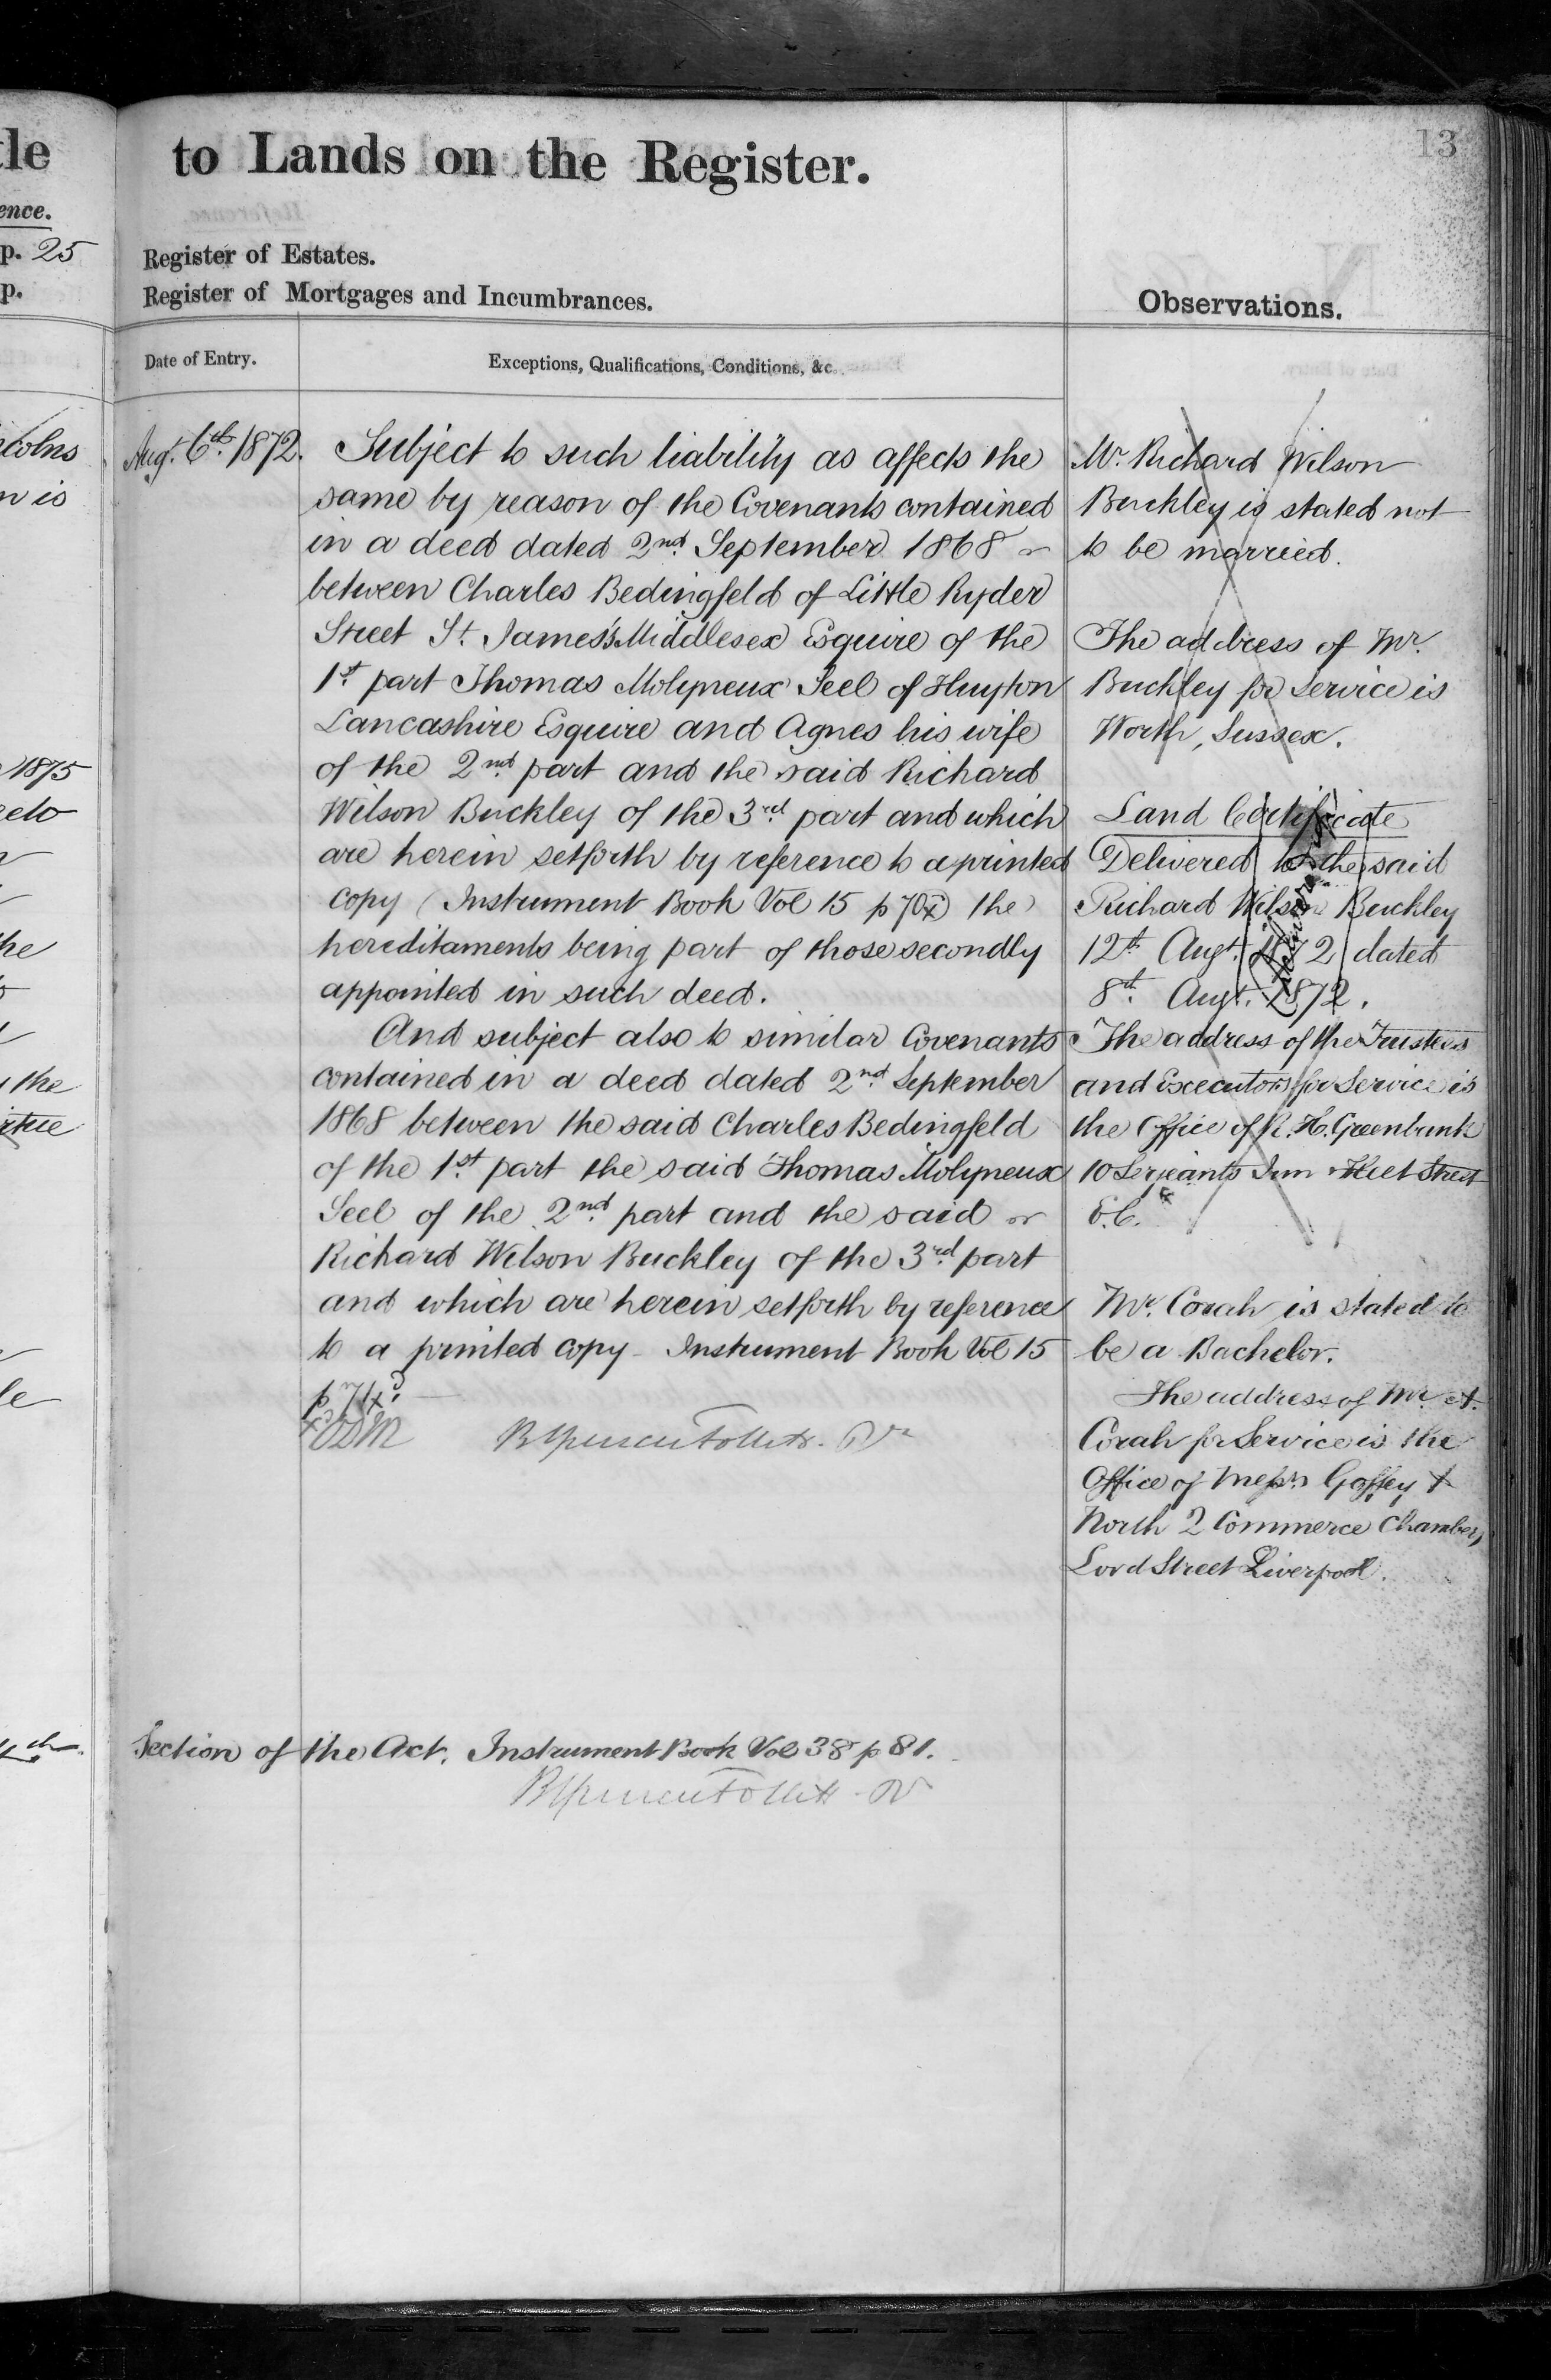 tle
ence.
p. 25
p.
ncolns
n is
1875
he
the
le
to Lands on the Register.
13
Register of Estates.
Register of Mortgages and Incumbrances.
Observations.
Date of Entry.
Exceptions, Qualifications, Conditions, &c.
Augt. 6th. 1872.
Subject to such liability as affects the
same by reason of the Covenants contained
in a deed dated 2nd September 1868
between Charles Bedingfeld of Little Ryder
Street St. James's Middlesex Esquire of the
1st. part Thomas Molyneux Seel of Huyton
Lancashire Esquire and Agnes his wife
of the 2nd part and the said Richard
Wilson Buckley of the 3rd part and which
are herein setforth by reference to a printed
copy (Instrument Book Vol 15 p 70x) the
hereditaments being part of those secondly
appointed in such deed.
And subject also to similar Covenants
contained in a deed dated 2nd September
1868 between the said Charles Bedingfeld
of the 1st. part the said Thomas Molyneux
Seel of the 2nd part and the said
Richard Wilson Buckley of the 3rd part
and which are herein setforth by reference
to a printed copy - Instrument Book Vol 15
p 74x
Section of the Act. Instrument Book Vol 38 p 81.
Mr. Richard Wilson
Buckley is stated not
to be married.
The address of Mr.
Buckley for Service is
Worth, Sussex.
Land Certificate
Delivered to the said
Richard Wilson Buckley
12th. Augt. 1872 dated
8th. Augt. 1872.
The address of the Trustees
and Executors for Service is
the Office of R. H. Greenbank
10 Serjeants Inn Fleet Street
E.C.
Mr. Corah is stated to
be a Bachelor.
The address of Mr. A.
Corah for Service is the
Office of Messrs Gaffey &
North 2 Commerce Chambers
Lord Street Liverpool.